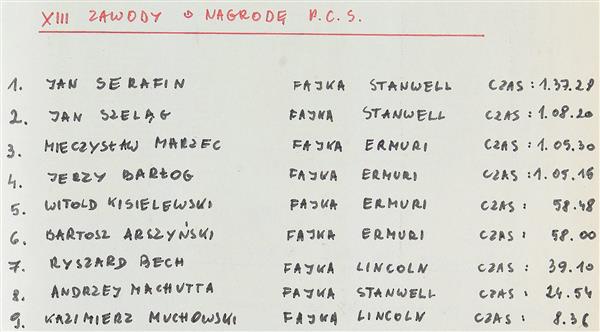 XIII ZAWODY O NAGRODĘ P.C.S.
1. JAN SERAFIN FAJKA STANWELL CZAS : 1.37.28
2. JAN SZELĄG FAJKA STANWELL CZAS : 1.08.20
3. MIECZYSŁAW MARZEC FAJKA ERMURI CZAS : 1.05.30
4. JERZY BARŁOG FAJKA ERMURI CZAS : 1.05.16
5. WITOLD KISIELEWSKI FAJKA ERMURI CZAS : 58.48
6. BARTOSZ ARSZYŃSKI FAJKA ERMURI CZAS : 58.00
7. RYSZARD BECH FAJKA LINCOLN CZAS : 39.10
8. ANDRZEJ MACHUTTA FAJKA STANWELL CZAS : 24.54
9. KAZIMIERZ MUCHOWSKI FAJKA LINCOLN CZAS : 8.36